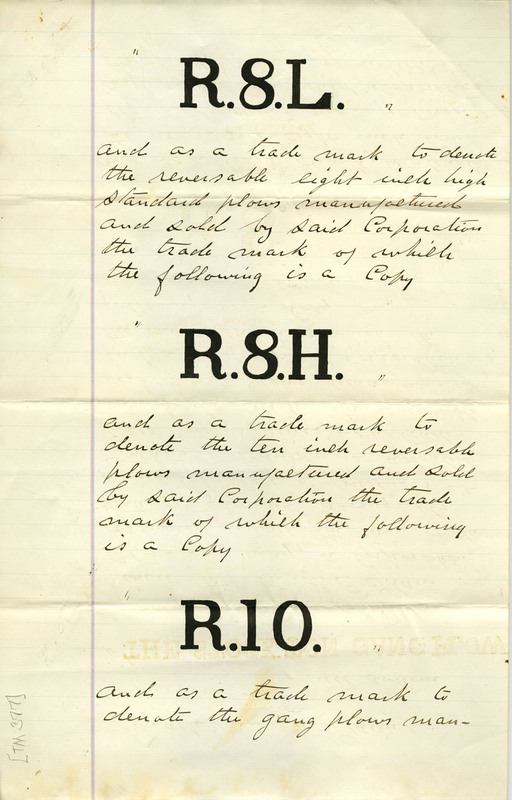 " R.8.L. "
and as a trade mark to denote
the reversable eight inch high
standard plows manufactured
and sold by said Corporation
the trade mark of which
the following is a Copy
" R.8.H. "
and as a trade mark to
denote the ten inch reversable
plows manufactured and sold
by said Corporation the trade
mark of which the following
is a Copy
" R.10. "
and as a trade mark to
denote the gang plows man-